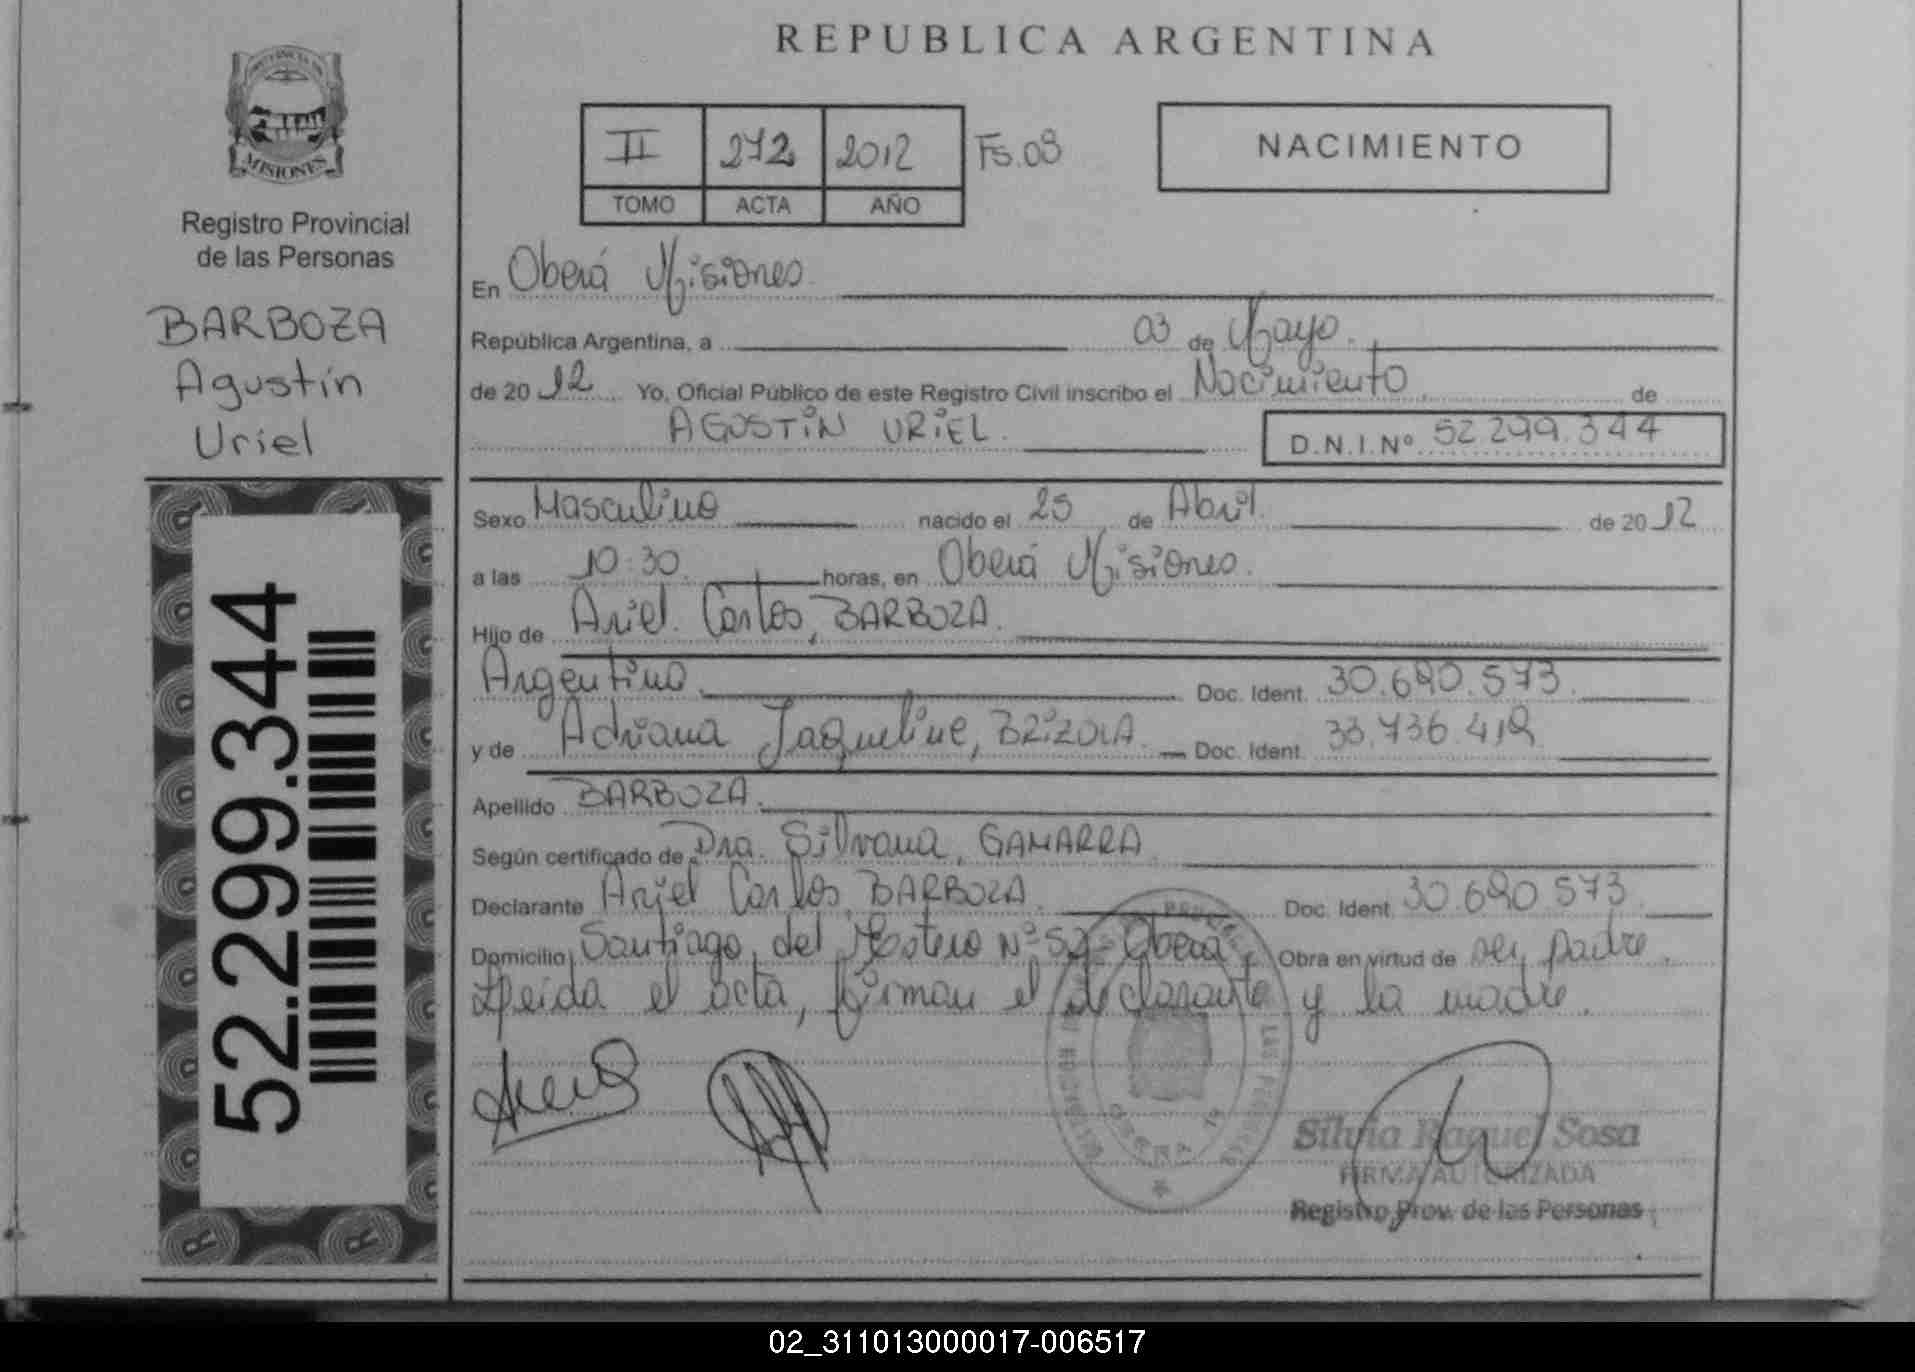 REPUBLICA ARGENTINA
PROVINCIA DE
MISIONES
Registro Provincial
de las Personas
BARBOZA
Agustín
Uriel
52.299.344
II 272 2012 Fs.09
TOMO ACTA AÑO
NACIMIENTO
En Oberá Misiones
República Argentina, a 03 de Mayo.
de 2012 Yo, Oficial Público de este Registro Civil inscribo el Nacimiento de
AGUSTÍN URIEL. D.N.I.Nº 52 299.344
Sexo Masculino nacido el 25 de Abril. de 2012
a las 10:30. horas, en Oberá Misiones.
Hijo de Ariel Carlos, BARBOZA.
Argentino Doc. Ident. 30.690.573.
y de Adriana Jaqueline, BRIZOLA. Doc. Ident. 33.736.412
Apellido BARBOZA.
Según certificado de Dra. Silvana, GAMARRA
Declarante Ariel Carlos, BARBOZA. Doc. Ident. 30 690 573.
Domicilio Santiago del Estero Nº 52 - Oberá. Obra en virtud de ser padre.
Leída el acta, firman el declarante y la madre.
LAS PERSONAS
Silvia Raquel Sosa
FIRMA AUTORIZADA
Registro Prov. de las Personas
02_311013000017-006517